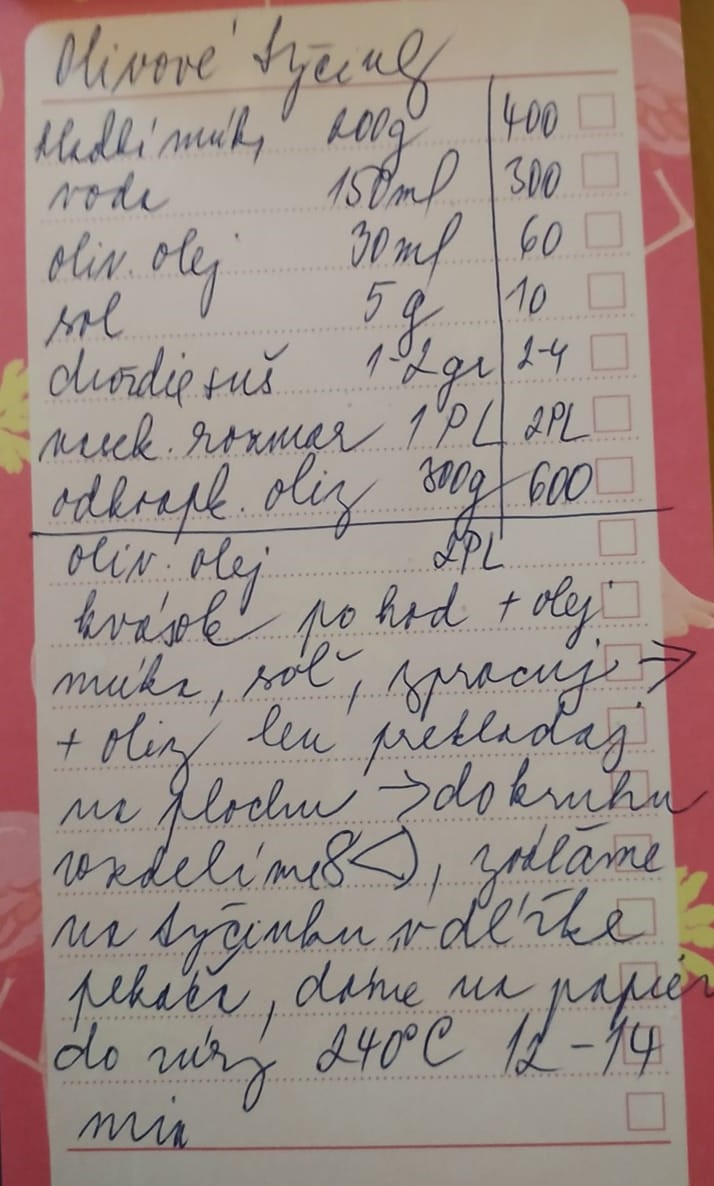 Olivové tyčinky
hladká múka 200g 400
voda 150ml 300
oliv. olej 30ml 60
sol 5g 10
droždie suš 1-2gr 2-4
nasek. rozmar 1PL 2PL
odkvapk. oliv 300g 600
oliv. olej 2PL
kvások po hod + olej
múka, soľ, zpracuj →
+ oliv len prekladaj
na plochu → do kruhu
rozdelíme 8, 
na tyčinku v dĺžke
pekača, dáme na papier
do rúry 240°C 12-14
min